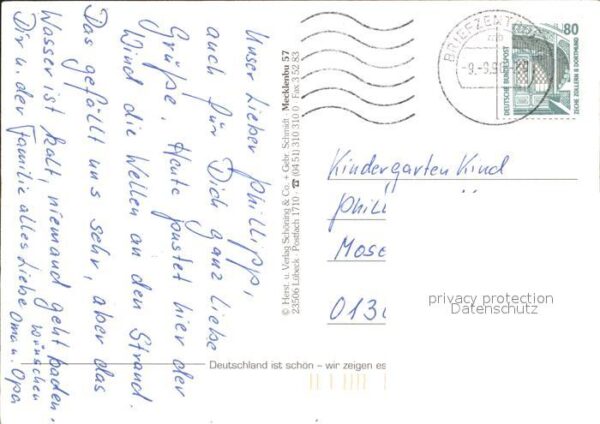 Unser lieber Phillipp,
auch für Dich ganz liebe
Grüße. Heute pustet hier der
Wind die Wellen an den Strand.
Das gefällt uns sehr, aber das
Wasser ist kalt, niemand geht baden.
wünschen
Dir u. der Familie alles Liebe Oma u. Opa
© Herst. u. Verlag Schöning & Co. + Gebr. Schmidt · Mecklenbu 57
23506 Lübeck · Postfach 1710 · ☎ (04 51) 310 310 0 · Fax 3 52 83
BRIEFZENT
-9.-9.98
80
DEUTSCHE BUNDESPOST
ZECHE ZOLLERN II DORTMUND
Kindergarten Kind
Phill
Mose
013
privacy protection
Datenschutz
Deutschland ist schön – wir zeigen es